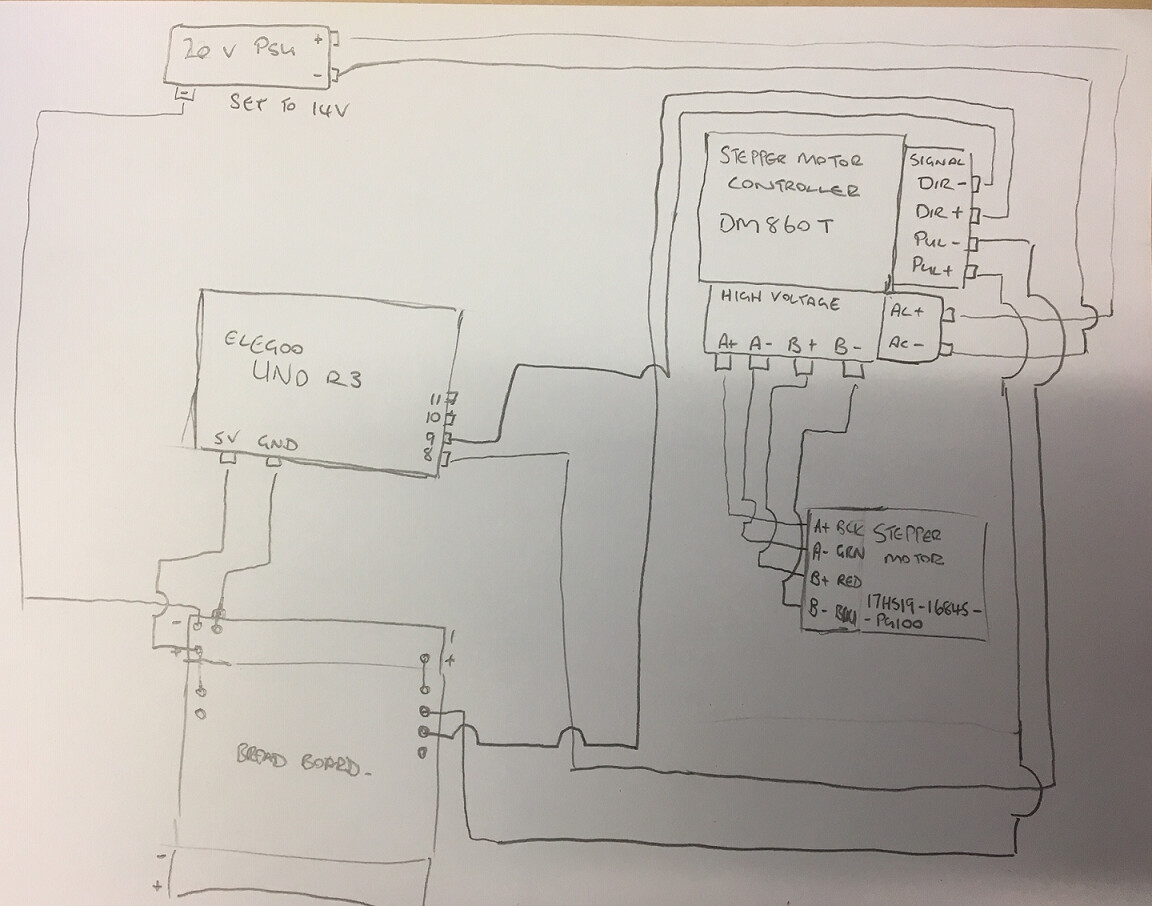 20 V PSU +
-
-
SET TO 14V
STEPPER MOTOR
CONTROLLER
DM860T
SIGNAL
DIR -
DIR +
PUL -
PUL +
HIGH VOLTAGE
A+ A- B+ B-
AC+
AC-
ELEGOO
UNO R3
11
10
9
8
5V GND
A+ BCK
A- GRN
B+ RED
B-
STEPPER
MOTOR
17HS19-1684S-
-PG100
-
+
-
+
BREAD BOARD
-
+